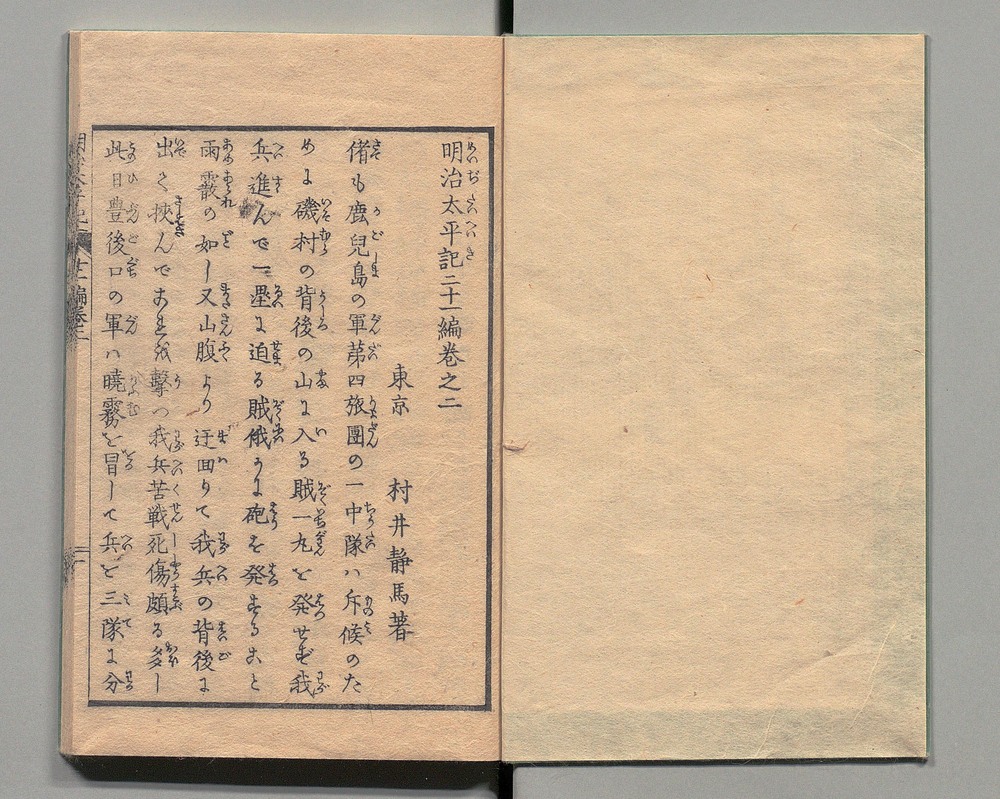 明治太平記二十一編巻之二
東京 村井静馬著
偖も鹿児島の軍第四旅團の一中隊ハ斥候のた
めに磯村の背後の山に入る賊一丸を発せず我
兵進んで一塁に迫る賊俄かに砲を発するこ
と雨霰の如し又山腹より迂回りて我兵の背後に
出て挾んでこれを撃つ我兵苦戦死傷頗る多し
此日豊後口の軍ハ曉霧を冒して兵を三隊に分